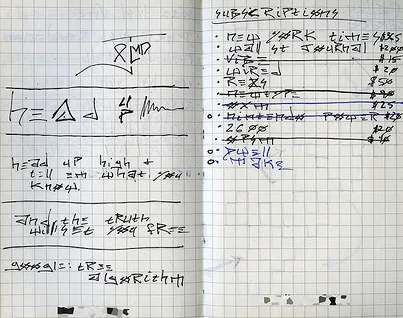 HEAD UP
HEAD UP HIGH +
TELL EM WHAT YOU
KNOW.
AND THE TRUTH
WILL SET YOU FREE
GOOGLE: TREE
ALGORITHM
SUBSCRIPTIONS
NEW YORK TIMES
WALL ST JOURNAL $200
VIBE $15
WIRED $20
$50
$25
NINTENDO POWER
2600 $20
SPIN
DWELL
MAKE